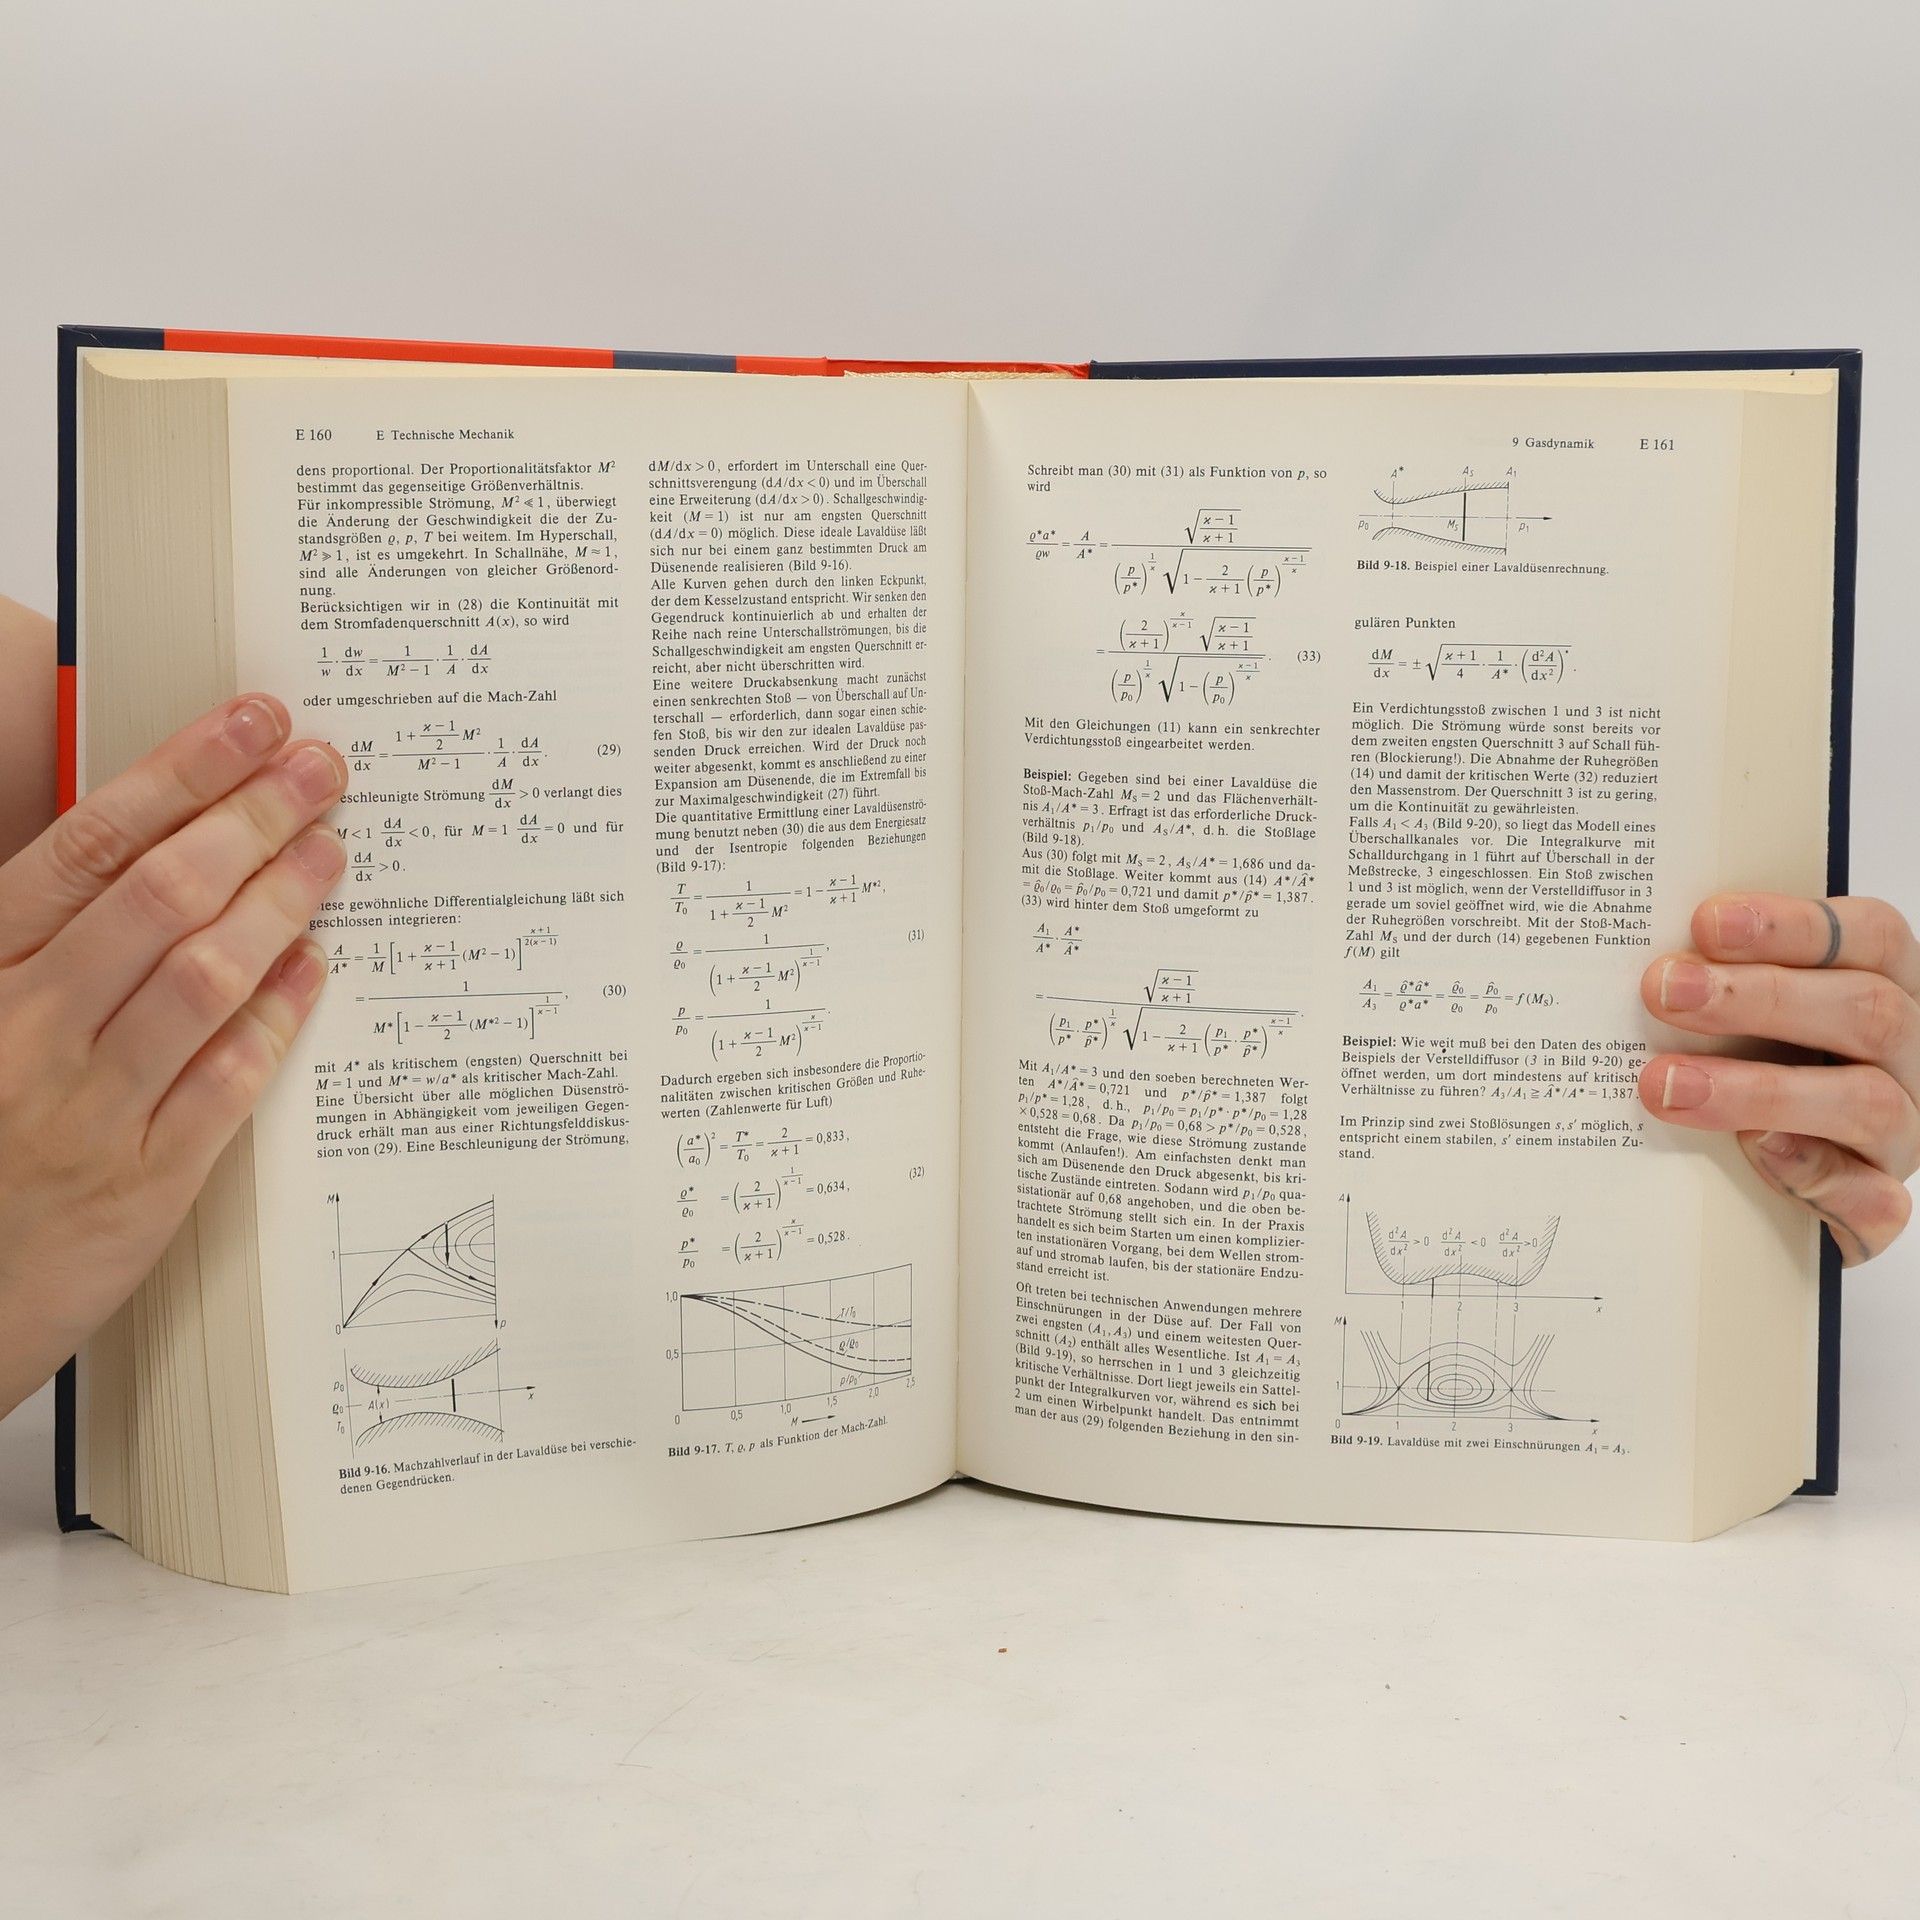 E 160 E Technische Mechanik
dens proportional. Der Proportionalitätsfaktor M²
bestimmt das gegenseitige Größenverhältnis.
Für inkompressible Strömung, M² ≪ 1, überwiegt
die Änderung der Geschwindigkeit die der Zu-
standsgrößen ϱ, p, T bei weitem. Im Hyperschall,
M² ≫ 1, ist es umgekehrt. In Schallnähe, M ≈ 1,
sind alle Änderungen von gleicher Größenord-
nung.
Berücksichtigen wir in (28) die Kontinuität mit
dem Stromfadenquerschnitt A(x), so wird
1/w · dw/dx = 1/(M² − 1) · 1/A · dA/dx
oder umgeschrieben auf die Mach-Zahl
dM/dx = (1 + (ϰ − 1)/2 M²)/(M² − 1) · 1/A · dA/dx. (29)
eschleunigte Strömung dM/dx > 0 verlangt dies
M < 1 dA/dx < 0, für M = 1 dA/dx = 0 und für
dA/dx > 0.
iese gewöhnliche Differentialgleichung läßt sich
geschlossen integrieren:
A/A* = 1/M [1 + (ϰ − 1)/(ϰ + 1) (M² − 1)]^((ϰ + 1)/(2(ϰ − 1)))
= 1/(M* [1 − (ϰ − 1)/2 (M*² − 1)]^(1/(ϰ − 1))), (30)
mit A* als kritischem (engsten) Querschnitt bei
M = 1 und M* = w/a* als kritischer Mach-Zahl.
Eine Übersicht über alle möglichen Düsenströ-
mungen in Abhängigkeit vom jeweiligen Gegen-
druck erhält man aus einer Richtungsfelddiskus-
sion von (29). Eine Beschleunigung der Strömung,
M
1
0
p
p₀
ϱ₀ A(x) x
T₀
Bild 9-16. Machzahlverlauf in der Lavaldüse bei verschie-
denen Gegendrücken.
dM/dx > 0, erfordert im Unterschall eine Quer-
schnittsverengung (dA/dx < 0) und im Überschall
eine Erweiterung (dA/dx > 0). Schallgeschwindig-
keit (M = 1) ist nur am engsten Querschnitt
(dA/dx = 0) möglich. Diese ideale Lavaldüse läßt
sich nur bei einem ganz bestimmten Druck am
Düsenende realisieren (Bild 9-16).
Alle Kurven gehen durch den linken Eckpunkt,
der dem Kesselzustand entspricht. Wir senken den
Gegendruck kontinuierlich ab und erhalten der
Reihe nach reine Unterschallströmungen, bis die
Schallgeschwindigkeit am engsten Querschnitt er-
reicht, aber nicht überschritten wird.
Eine weitere Druckabsenkung macht zunächst
einen senkrechten Stoß — von Überschall auf Un-
terschall — erforderlich, dann sogar einen schie-
fen Stoß, bis wir den zur idealen Lavaldüse pas-
senden Druck erreichen. Wird der Druck noch
weiter abgesenkt, kommt es anschließend zu einer
Expansion am Düsenende, die im Extremfall bis
zur Maximalgeschwindigkeit (27) führt.
Die quantitative Ermittlung einer Lavaldüsenströ-
mung benutzt neben (30) die aus dem Energiesatz
und der Isentropie folgenden Beziehungen
(Bild 9-17):
T/T₀ = 1/(1 + (ϰ − 1)/2 M²) = 1 − (ϰ − 1)/(ϰ + 1) M*²,
ϱ/ϱ₀ = 1/(1 + (ϰ − 1)/2 M²)^(1/(ϰ − 1)), (31)
p/p₀ = 1/(1 + (ϰ − 1)/2 M²)^(ϰ/(ϰ − 1)).
Dadurch ergeben sich insbesondere die Proportio-
nalitäten zwischen kritischen Größen und Ruhe-
werten (Zahlenwerte für Luft)
(a*/a₀)² = T*/T₀ = 2/(ϰ + 1) = 0,833,
ϱ*/ϱ₀ = (2/(ϰ + 1))^(1/(ϰ − 1)) = 0,634, (32)
p*/p₀ = (2/(ϰ + 1))^(ϰ/(ϰ − 1)) = 0,528.
1,0
T/T₀
0,5
ϱ/ϱ₀
p/p₀
0 0,5 1,0 1,5 2,0 2,5
M
Bild 9-17. T, ϱ, p als Funktion der Mach-Zahl.
9 Gasdynamik E 161
Schreibt man (30) mit (31) als Funktion von p, so
wird
ϱ*a*/ϱw = A/A* = √((ϰ − 1)/(ϰ + 1)) / ((p/p*)^(1/ϰ) √(1 − 2/(ϰ + 1) (p/p*)^((ϰ − 1)/ϰ)))
= (2/(ϰ + 1))^(1/(ϰ − 1)) √((ϰ − 1)/(ϰ + 1)) / ((p/p₀)^(1/ϰ) √(1 − (p/p₀)^((ϰ − 1)/ϰ))). (33)
Mit den Gleichungen (11) kann ein senkrechter
Verdichtungsstoß eingearbeitet werden.
Beispiel: Gegeben sind bei einer Lavaldüse die
Stoß-Mach-Zahl M_S = 2 und das Flächenverhält-
nis A₁/A* = 3. Erfragt ist das erforderliche Druck-
verhältnis p₁/p₀ und A_S/A*, d. h. die Stoßlage
(Bild 9-18).
Aus (30) folgt mit M_S = 2, A_S/A* = 1,686 und da-
mit die Stoßlage. Weiter kommt aus (14) A*/Â*
= ϱ̂₀/ϱ₀ = p̂₀/p₀ = 0,721 und damit p*/p̂* = 1,387.
(33) wird hinter dem Stoß umgeformt zu
A₁/A* · A*/Â*
= √((ϰ − 1)/(ϰ + 1)) / ((p₁/p* · p*/p̂*)^(1/ϰ) √(1 − 2/(ϰ + 1) (p₁/p* · p*/p̂*)^((ϰ − 1)/ϰ))).
Mit A₁/A* = 3 und den soeben berechneten Wer-
ten A*/Â* = 0,721 und p*/p̂* = 1,387 folgt
p₁/p* = 1,28, d. h., p₁/p₀ = p₁/p* · p*/p₀ = 1,28
× 0,528 = 0,68. Da p₁/p₀ = 0,68 > p*/p₀ = 0,528,
entsteht die Frage, wie diese Strömung zustande
kommt (Anlaufen!). Am einfachsten denkt man
sich am Düsenende den Druck abgesenkt, bis kri-
tische Zustände eintreten. Sodann wird p₁/p₀ qua-
sistationär auf 0,68 angehoben, und die oben be-
trachtete Strömung stellt sich ein. In der Praxis
handelt es sich beim Starten um einen komplizier-
ten instationären Vorgang, bei dem Wellen strom-
auf und stromab laufen, bis der stationäre Endzu-
stand erreicht ist.
Oft treten bei technischen Anwendungen mehrere
Einschnürungen in der Düse auf. Der Fall von
zwei engsten (A₁, A₃) und einem weitesten Quer-
schnitt (A₂) enthält alles Wesentliche. Ist A₁ = A₃
(Bild 9-19), so herrschen in 1 und 3 gleichzeitig
kritische Verhältnisse. Dort liegt jeweils ein Sattel-
punkt der Integralkurven vor, während es sich bei
2 um einen Wirbelpunkt handelt. Das entnimmt
man der aus (29) folgenden Beziehung in den sin-
A* A_S A₁
p₀ M_S p₁
Bild 9-18. Beispiel einer Lavaldüsenrechnung.
gulären Punkten
dM/dx = ± √((ϰ + 1)/4 · 1/A* · (d²A/dx²)*).
Ein Verdichtungsstoß zwischen 1 und 3 ist nicht
möglich. Die Strömung würde sonst bereits vor
dem zweiten engsten Querschnitt 3 auf Schall füh-
ren (Blockierung!). Die Abnahme der Ruhegrößen
(14) und damit der kritischen Werte (32) reduziert
den Massenstrom. Der Querschnitt 3 ist zu gering,
um die Kontinuität zu gewährleisten.
Falls A₁ < A₃ (Bild 9-20), so liegt das Modell eines
Überschallkanales vor. Die Integralkurve mit
Schalldurchgang in 1 führt auf Überschall in der
Meßstrecke, 3 eingeschlossen. Ein Stoß zwischen
1 und 3 ist möglich, wenn der Verstelldiffusor in 3
gerade um soviel geöffnet wird, wie die Abnahme
der Ruhegrößen vorschreibt. Mit der Stoß-Mach-
Zahl M_S und der durch (14) gegebenen Funktion
f(M) gilt
A₁/A₃ = ϱ̂*â*/ϱ*a* = ϱ̂₀/ϱ₀ = p̂₀/p₀ = f(M_S).
Beispiel: Wie weit muß bei den Daten des obigen
Beispiels der Verstelldiffusor (3 in Bild 9-20) ge-
öffnet werden, um dort mindestens auf kritisch
Verhältnisse zu führen? A₃/A₁ ≧ Â*/A* = 1,387.
Im Prinzip sind zwei Stoßlösungen s, s′ möglich, s
entspricht einem stabilen, s′ einem instabilen Zu-
stand.
A
d²A/dx² > 0 d²A/dx² < 0 d²A/dx² > 0
1 2 3 x
M
1
0 1 2 3 x
Bild 9-19. Lavaldüse mit zwei Einschnürungen A₁ = A₃.